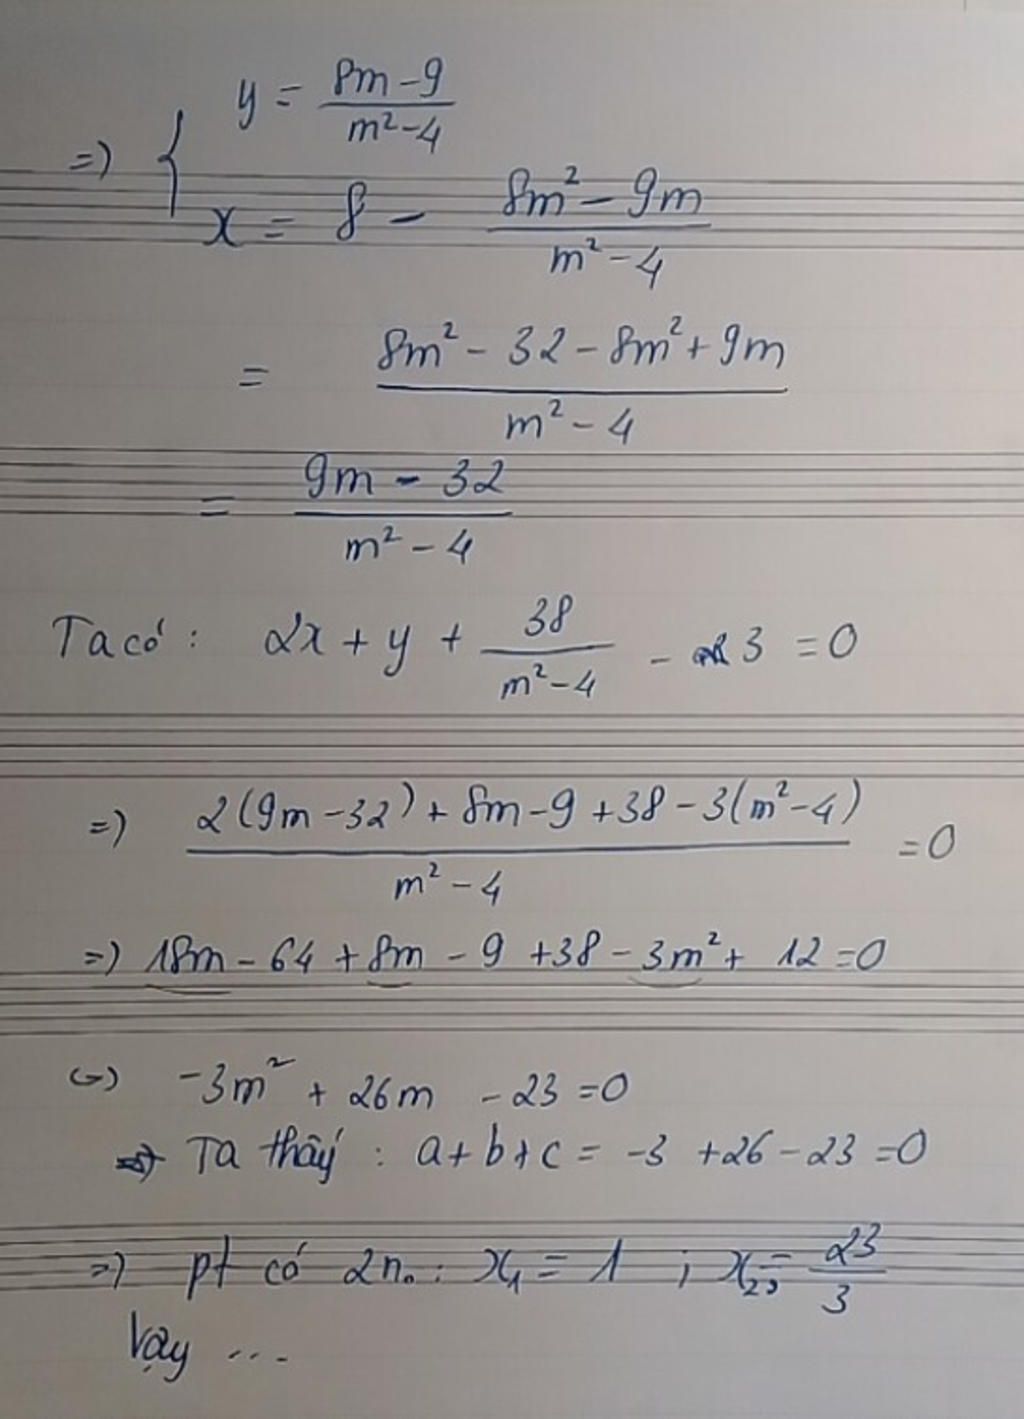 y = (8m - 9)/(m² - 4)
=> { x = 8 - (8m² - 9m)/(m² - 4)
= (8m² - 32 - 8m² + 9m)/(m² - 4)
= (9m - 32)/(m² - 4)
Ta có : 2x + y + 38/(m² - 4) - 3 = 0
=> (2(9m - 32) + 8m - 9 + 38 - 3(m² - 4))/(m² - 4) = 0
=> 18m - 64 + 8m - 9 + 38 - 3m² + 12 = 0
<=> -3m² + 26m - 23 = 0
Ta thấy : a + b + c = -3 + 26 - 23 = 0
=> pt có 2 n₀ : x₁ = 1 ; x₂ = 23/3
Vậy ...